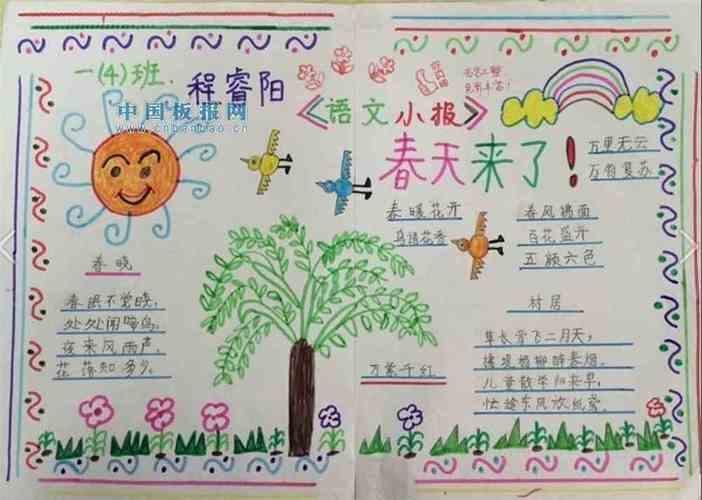 一(4)班.
程睿阳
中国板报网
www.cnbanbao.cn
《语文小报》
春天来了！
万里无云
万物复苏
春暖花开
鸟语花香
春风拂面
百花盛开
五颜六色
春晓
春眠不觉晓,
处处闻啼鸟,
夜来风雨声,
花落知多少。
万紫千红
村居
草长莺飞二月天,
拂堤杨柳醉春烟.
儿童散学归来早,
忙趁东风放纸鸢.